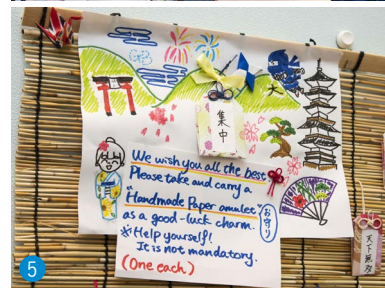 大
集中
We wish you all the best
Please take and carry a
"Handmade Paper amulet"
as a good-luck charm.
お守り
※Help yourself!
It is not mandatory.
(One each)
天下無双
5